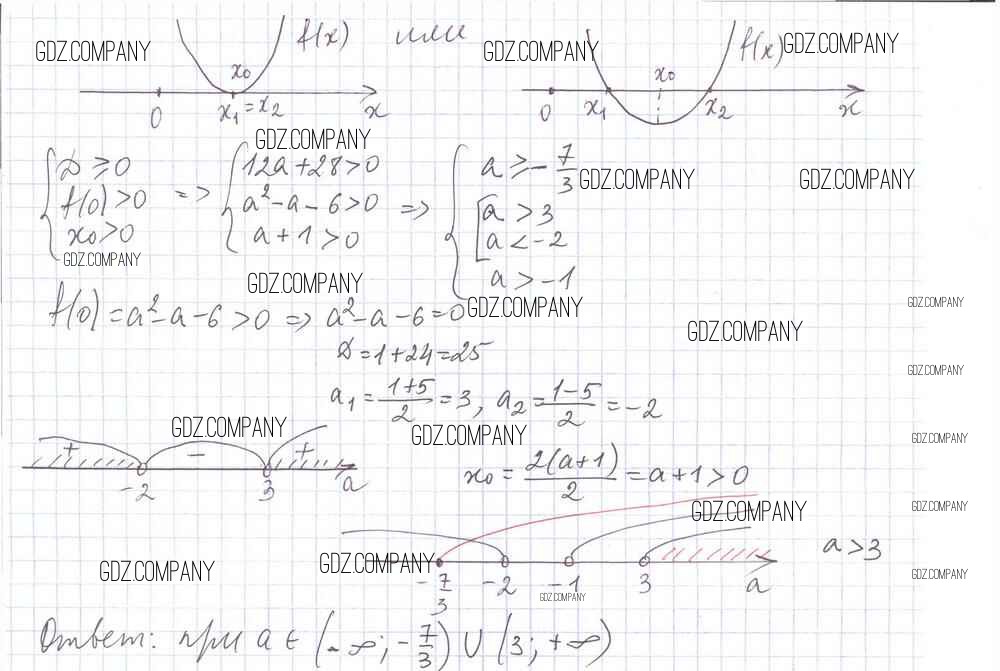 GDZ.COMPANY f(x) или GDZ.COMPANY f(x) GDZ.COMPANY
x₀ x₀
0 x₁ = x₂ x 0 x₁ x₂ x
GDZ.COMPANY
{ D ≥ 0 => { 12a + 28 > 0 => { a ≥ -7/3
GDZ.COMPANY GDZ.COMPANY
f(0) > 0 a² - a - 6 > 0 [ a > 3
x₀ > 0 a + 1 > 0 a < -2
GDZ.COMPANY a > -1
GDZ.COMPANY
GDZ.COMPANY
f(0) = a² - a - 6 > 0 => a² - a - 6 = 0 GDZ.COMPANY
GDZ.COMPANY
D = 1 + 24 = 25
GDZ.COMPANY
a₁ = (1+5)/2 = 3, a₂ = (1-5)/2 = -2
GDZ.COMPANY GDZ.COMPANY GDZ.COMPANY
+ - +
-2 3 a
x₀ = 2(a+1)/2 = a + 1 > 0
GDZ.COMPANY GDZ.COMPANY
GDZ.COMPANY GDZ.COMPANY a > 3 GDZ.COMPANY
-7/3 -2 -1 3 a
GDZ.COMPANY
Ответ: при a ∈ (-∞; -7/3) ∪ (3; +∞)